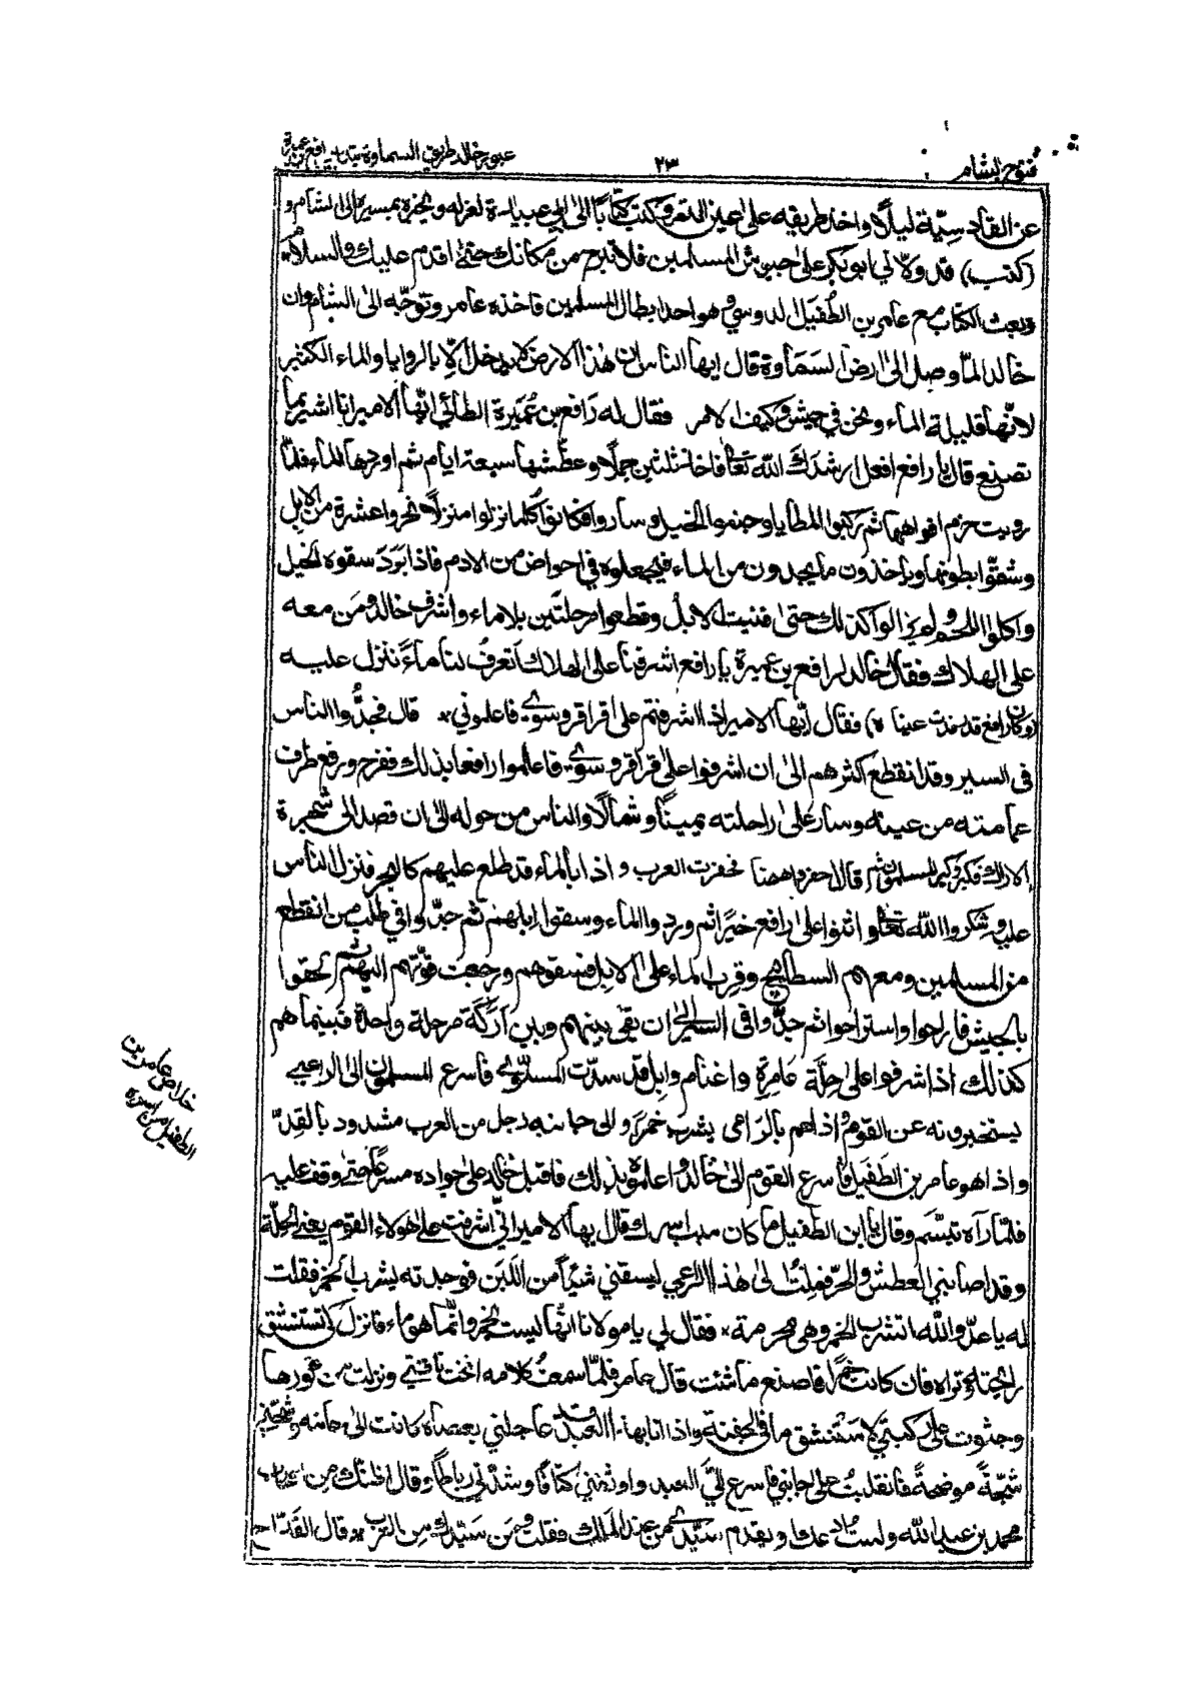 فتوح الشام
٢٣
عبور خالد طريق السماوة بتدبير رافع بن عميرة
عن القادسِيّة ليلًا واخذ طريقه على عين التمر وكتب كتابًا الى ابي عبيدة لعزله ويخبره بمسيره الى الشام و
(كتب) قد ولّاني ابو بكر على جيوش المسلمين فلا تبرح من مكانك حتى اقدم عليك والسلام
وبعث الكتاب مع عامر بن الطُفَيل الدوسي وهو احد ابطال المسلمين فاخذه عامر وتوجّه الى الشام وان
خالد لمّا وصل الى ارض السَمَاوة قال ايها الناس ان هٰذا الارض لا يدخل الّا بالروايا والماء الكثير
لانّها قليلة الماء ونحن في جيش وكيف الامر فقال له رَافع بن عُمَيرَة الطائي ايّها الامير انا اشير بما
تصنع قال يا رافع افعل ارشدك الله تعالى فاخذ ثلثين جملًا وعطّشها سبعة ايام ثم اوردها الماء فلمّا
رويت حزم افواهها ثم ركبوا المطايا وجنبوا الخيل وساروا فكانوا كلما نزلوا منزلًا نحروا عشرة من الابل
وشقّوا بطونها وياخذون ما يجدون من الماء فيجعلوه في احواض من الادم فاذا بَرَدَ سقوه الخيل
واكلوا اللحم ولم يزالوا كذلك حتى فنيت الابل وقطعوا مرحلتين بلا ماء واشرف خالد ومَن معه
على الهلاك فقال خالد لرافع بن عميرة يا رافع اشرفنا على الهلاك اتعرف لنا ماءً ننزل عليه
(وكان رافع قد رمدت عيناه) فقال ايّها الامير اذا اشرفتم على قراقر وسُوَى فاعلموني * قال فجدُّوا الناس
فى السير وقد انقطع اكثرهم الى ان اشرفوا على قراقر وسُوَى فاعلموا رافعا بذلك ففرح ورفع طرف
عمامته من عينه وسار على راحلته يمينًا وشمالًا والناس من حوله الى ان قصد الى شجرة
الاراك فكبّر وكبّر المسلمون ثم قال احفروا ههنا فحفرت العرب واذا بالماء قد طلع عليهم كالبحر فنزل الناس
عليه وشكروا الله تعالى واثنوا على رافع خيرًا ثم وردوا الماء وسقوا ابلهم ثم جدّوا في طلب من انقطع
من المسلمين ومعهم السطائح وقِرب الماء على الابل فسقوهم ورجعت قوّتهم اليهم ثم لحقوا
بالجيش فاراحوا واستراحوا ثم جدّوا فى السير الى ان بقي بينهم وبين اَرَكَة مرحلة واحدة فبينما هم
كذلك اذ اشرفوا على حِلّة عَامِرة واغنام وابل قد سدّت المستوى فاسرع المسلمون الى الراعي
يستخبرونه عن القوم واذ هم بالراعى يشرب خمرًا والى جانبه رجل من العرب مشدود بالقِدّ
واذا هو عامر بن الطَفَيل فاسرع القوم الى خالد واعلموه بذلك فاقبل خالد على جواده مسرعًا حتى وقف عليه
فلمّا رآه تبسَّم وقال يا ابن الطفيل ما كان سبب اسرك قال ايها الامير انّي اشرفت على هؤلاء القوم يعني الحِلّة
وقد اصابني العطش والحرّ فمِلتُ الى هٰذا الراعي ليسقني شيئًا من اللَبَن فوجدته يشرب الخمر فقلت
له يا عدوّ الله اتشرب الخمر وهى محرمة * فقال لي يا مولانا انّها ليست بخمر وانّما هو ماء فانزل كي تستنشق
رائحته وتراه فان كانت خمرًا فاصنع ما شئت قال عامر فلمّا سمعتُ كلامه انخت ناقتي ونزلت من كورها
وجثوت على ركبتي لاستنشق ما في الجفنة واذا انا بهذا العبد قد عاجلني بعصاة كانت الى جانبه وشجّني
شَجّةً موضحةً فانقلبتُ على جانبي فاسرع اليَّ العبد واوثقني كتافًا وشدّني رباطًا وقال اظنّك من اصحاب
محمد بن عبد الله ولست ادعك او يقدم سيّدى من عند الملك فقلت ومَن سيّدك مِن العرب * قال القَدّاح
خلاص عامر بن
الطفيل من اسره